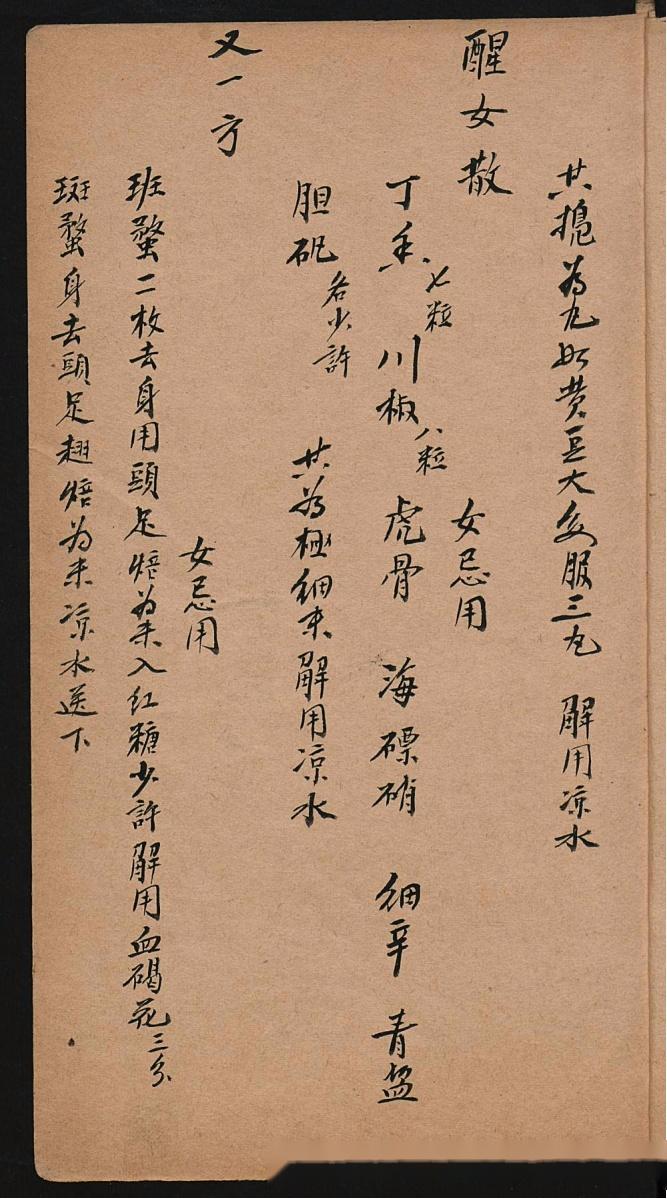 共搗為丸如黄豆大每服三丸 解用凉水
醒女散
女忌用
丁香七粒 川椒八粒 虎骨 海磦硝 细辛 青盐
胆矾各少許 共為極细末 解用凉水
又一方
女忌用
班蝥二枚去身用頭足焙為末入红糖少許解用血碣花三分
斑蝥身去頭足翅焙為末凉水送下